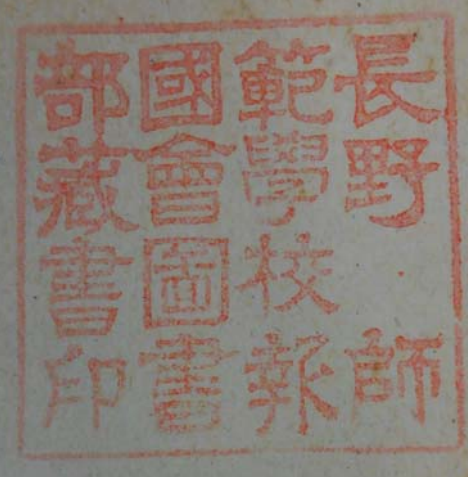 長野師
範學校報
國會圖書
部藏書印